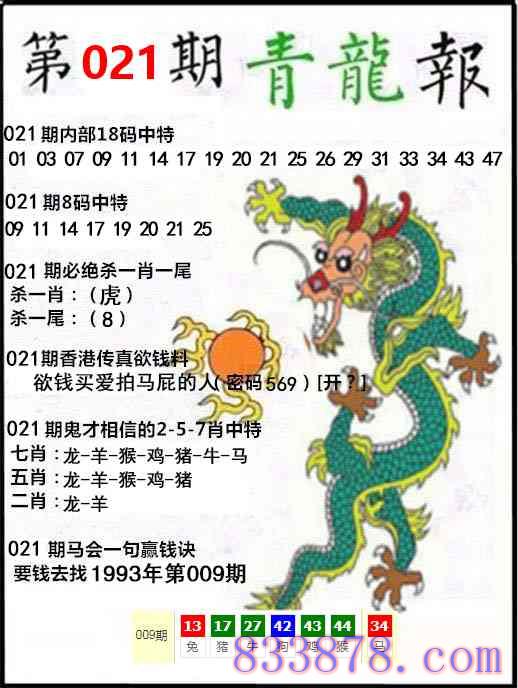 第021期青龍報
021期内部18码中特
01 03 07 09 11 14 17 19 20 21 25 26 29 31 33 34 43 47
021期8码中特
09 11 14 17 19 20 21 25
021 期必绝杀一肖一尾
杀一肖：（虎）
杀一尾：（8）
021期香港传真欲钱料
欲钱买爱拍马屁的人(密码569)[开？]
021期鬼才相信的2-5-7肖中特
七肖：龙-羊-猴-鸡-猪-牛-马
五肖：龙-羊-猴-鸡-猪
二肖：龙-羊
021 期马会一句赢钱诀
要钱去找1993年第009期
009期 13 17 27 42 43 44 34
兔 猪 牛 狗 鸡 猴 马
833878.com